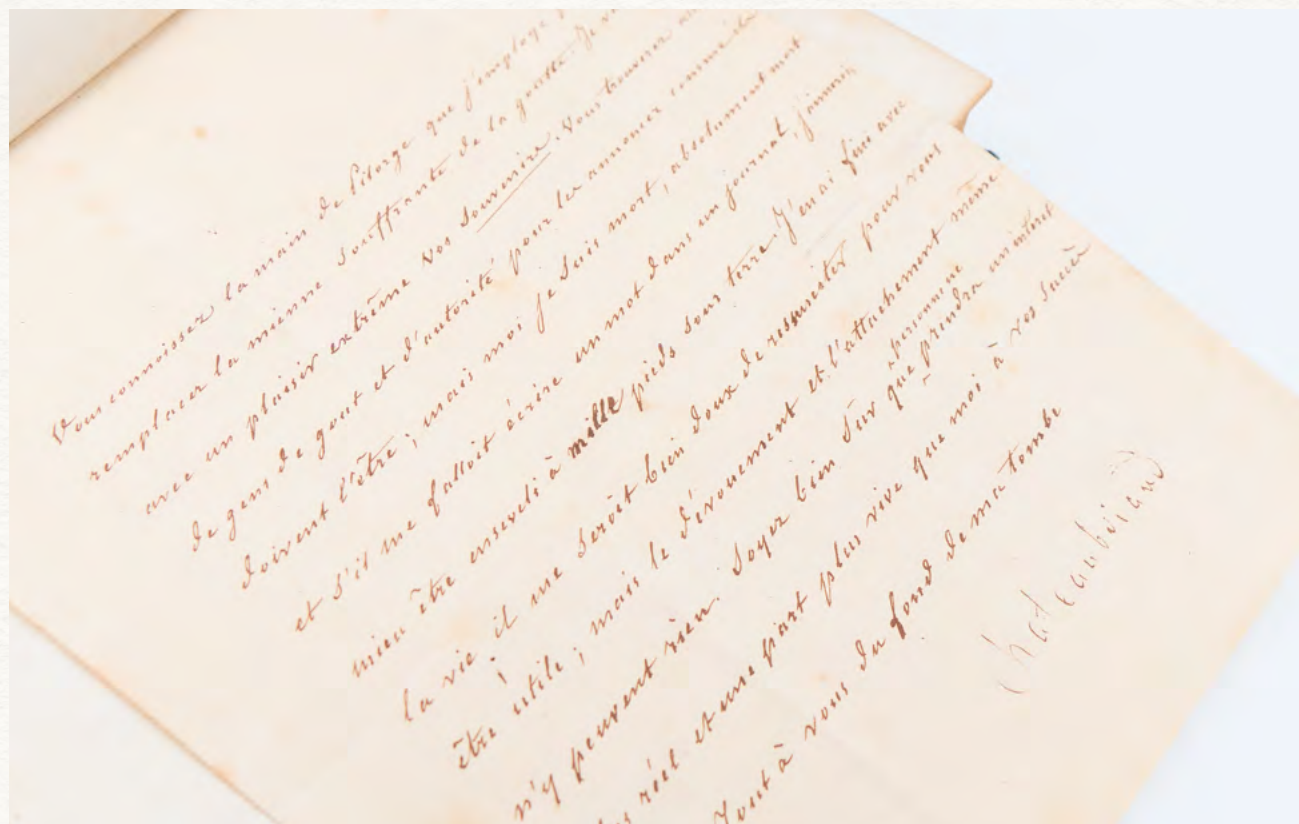 Vous connoissez la main de Pilorge que j'employe
remplacer la mienne souffrante de la goutte. Je
avec un plaisir extrême vos Souvenirs. Vous trouverez
de gens de gout et d'autorité pour les annoncer comme ils
doivent l'être; mais moi je suis mort, absolument mort
et s'il me falloit écrire un mot dans un journal, j'aimerois
mieu être enseveli à mille pieds sous terre. J'en ai fini avec
la vie il me seroit bien doux de ressusciter pour vous
être utile; mais le dévouement et l'attachement même
n'y peuvent rien. Soyez bien sûr que personne prendra un intérêt
réel et une part plus vive que moi à vos succès
Tout à vous du fond de ma tombe
Chateaubriand